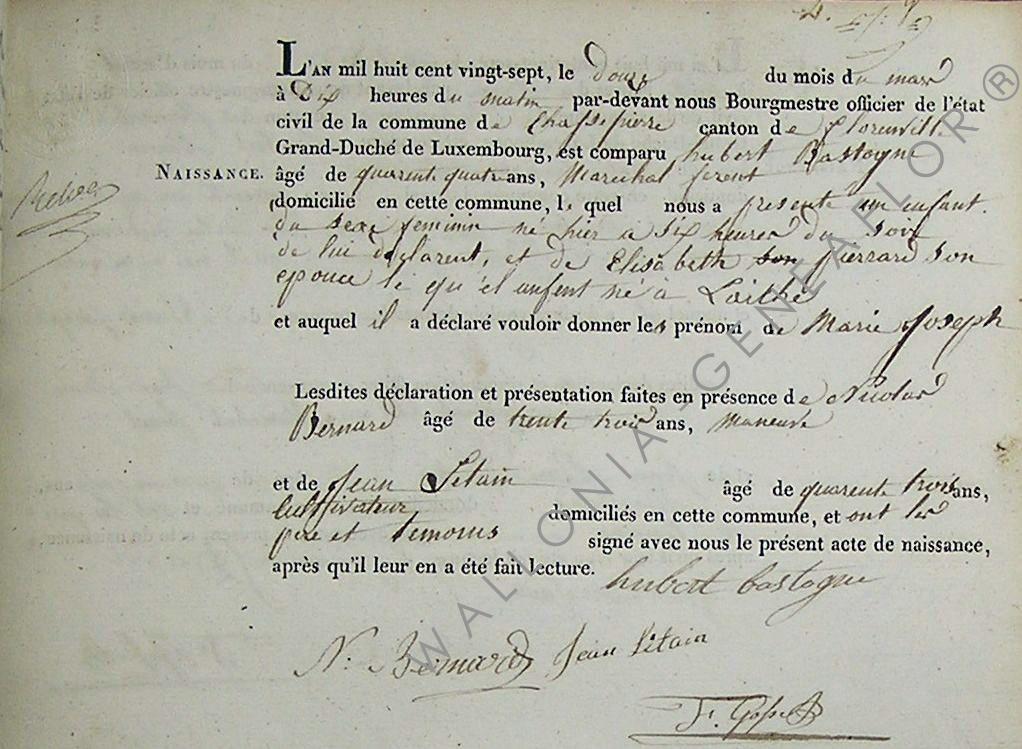 L'AN mil huit cent vingt-sept, le douze du mois du mars
à Dix heures du matin par-devant nous Bourgmestre officier de l'état
civil de la commune de Chassepierre canton de florenvill
Grand-Duché de Luxembourg, est comparu hubert Bastogne
NAISSANCE. âgé de quarente quatre ans, Marechal ferent
domicilié en cette commune, le quel nous a presente un enfant
du sexe feminin né hier a six heures du soir
de lui declarent, et de Elisabeth son pierrard son
epouce le qu'el enfent né à Laiche
et auquel il a déclaré vouloir donner les prénom de Marie Joseph
Lesdites déclaration et présentation faites en présence de Nicolas
Bernard âgé de trente trois ans, maneuvre
et de Jean Letain âgé de quarente trois ans,
cultivateur domiciliés en cette commune, et ont les
pere et temoins signé avec nous le présent acte de naissance,
après qu'il leur en a été fait lecture. hubert bastogne
N. Bernard Jean Litain
WALLONIA-GENEAFLOR ®